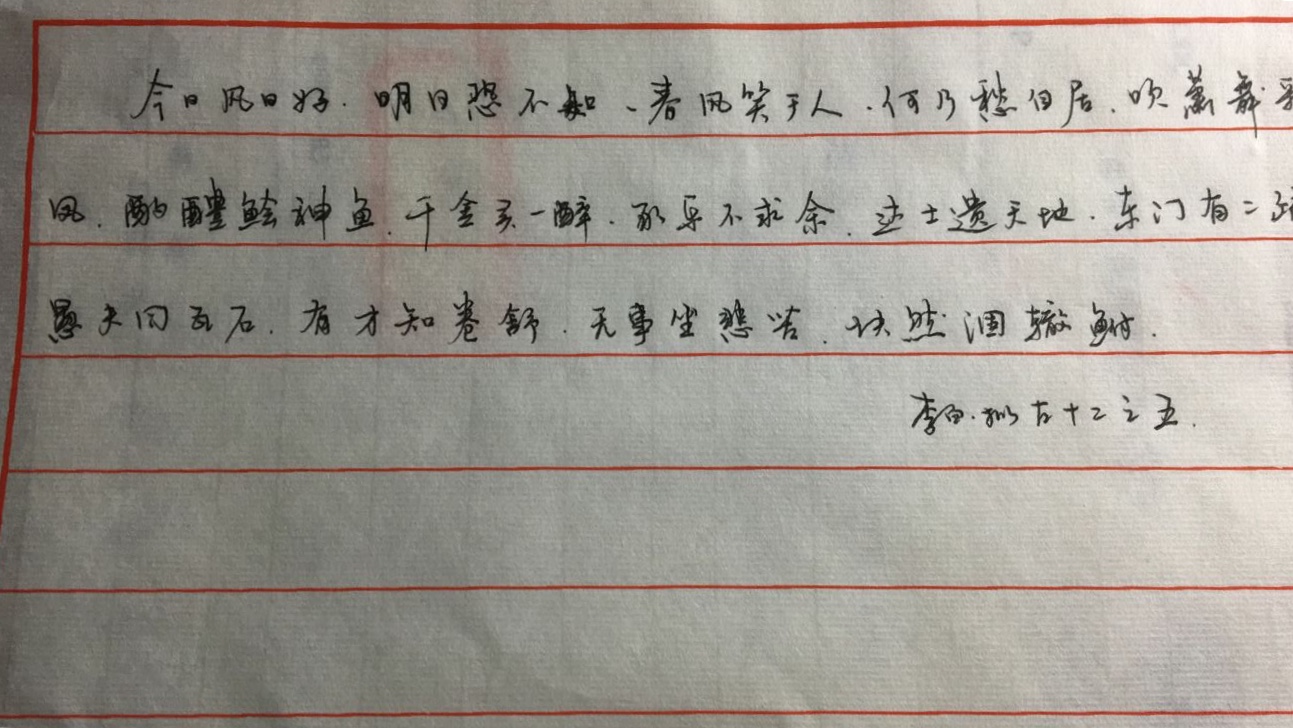 今日风日好.明日恐不如、春风笑于人.何乃愁自居.吹萧舞
凤.酌醴鲙神鱼.千金买一醉.取乐不求余.达士遗天地.东门有二疏
愚夫同瓦石.有才知卷舒.无事坐悲苦.块然涸辙鲋.
李白.拟古十二之五.